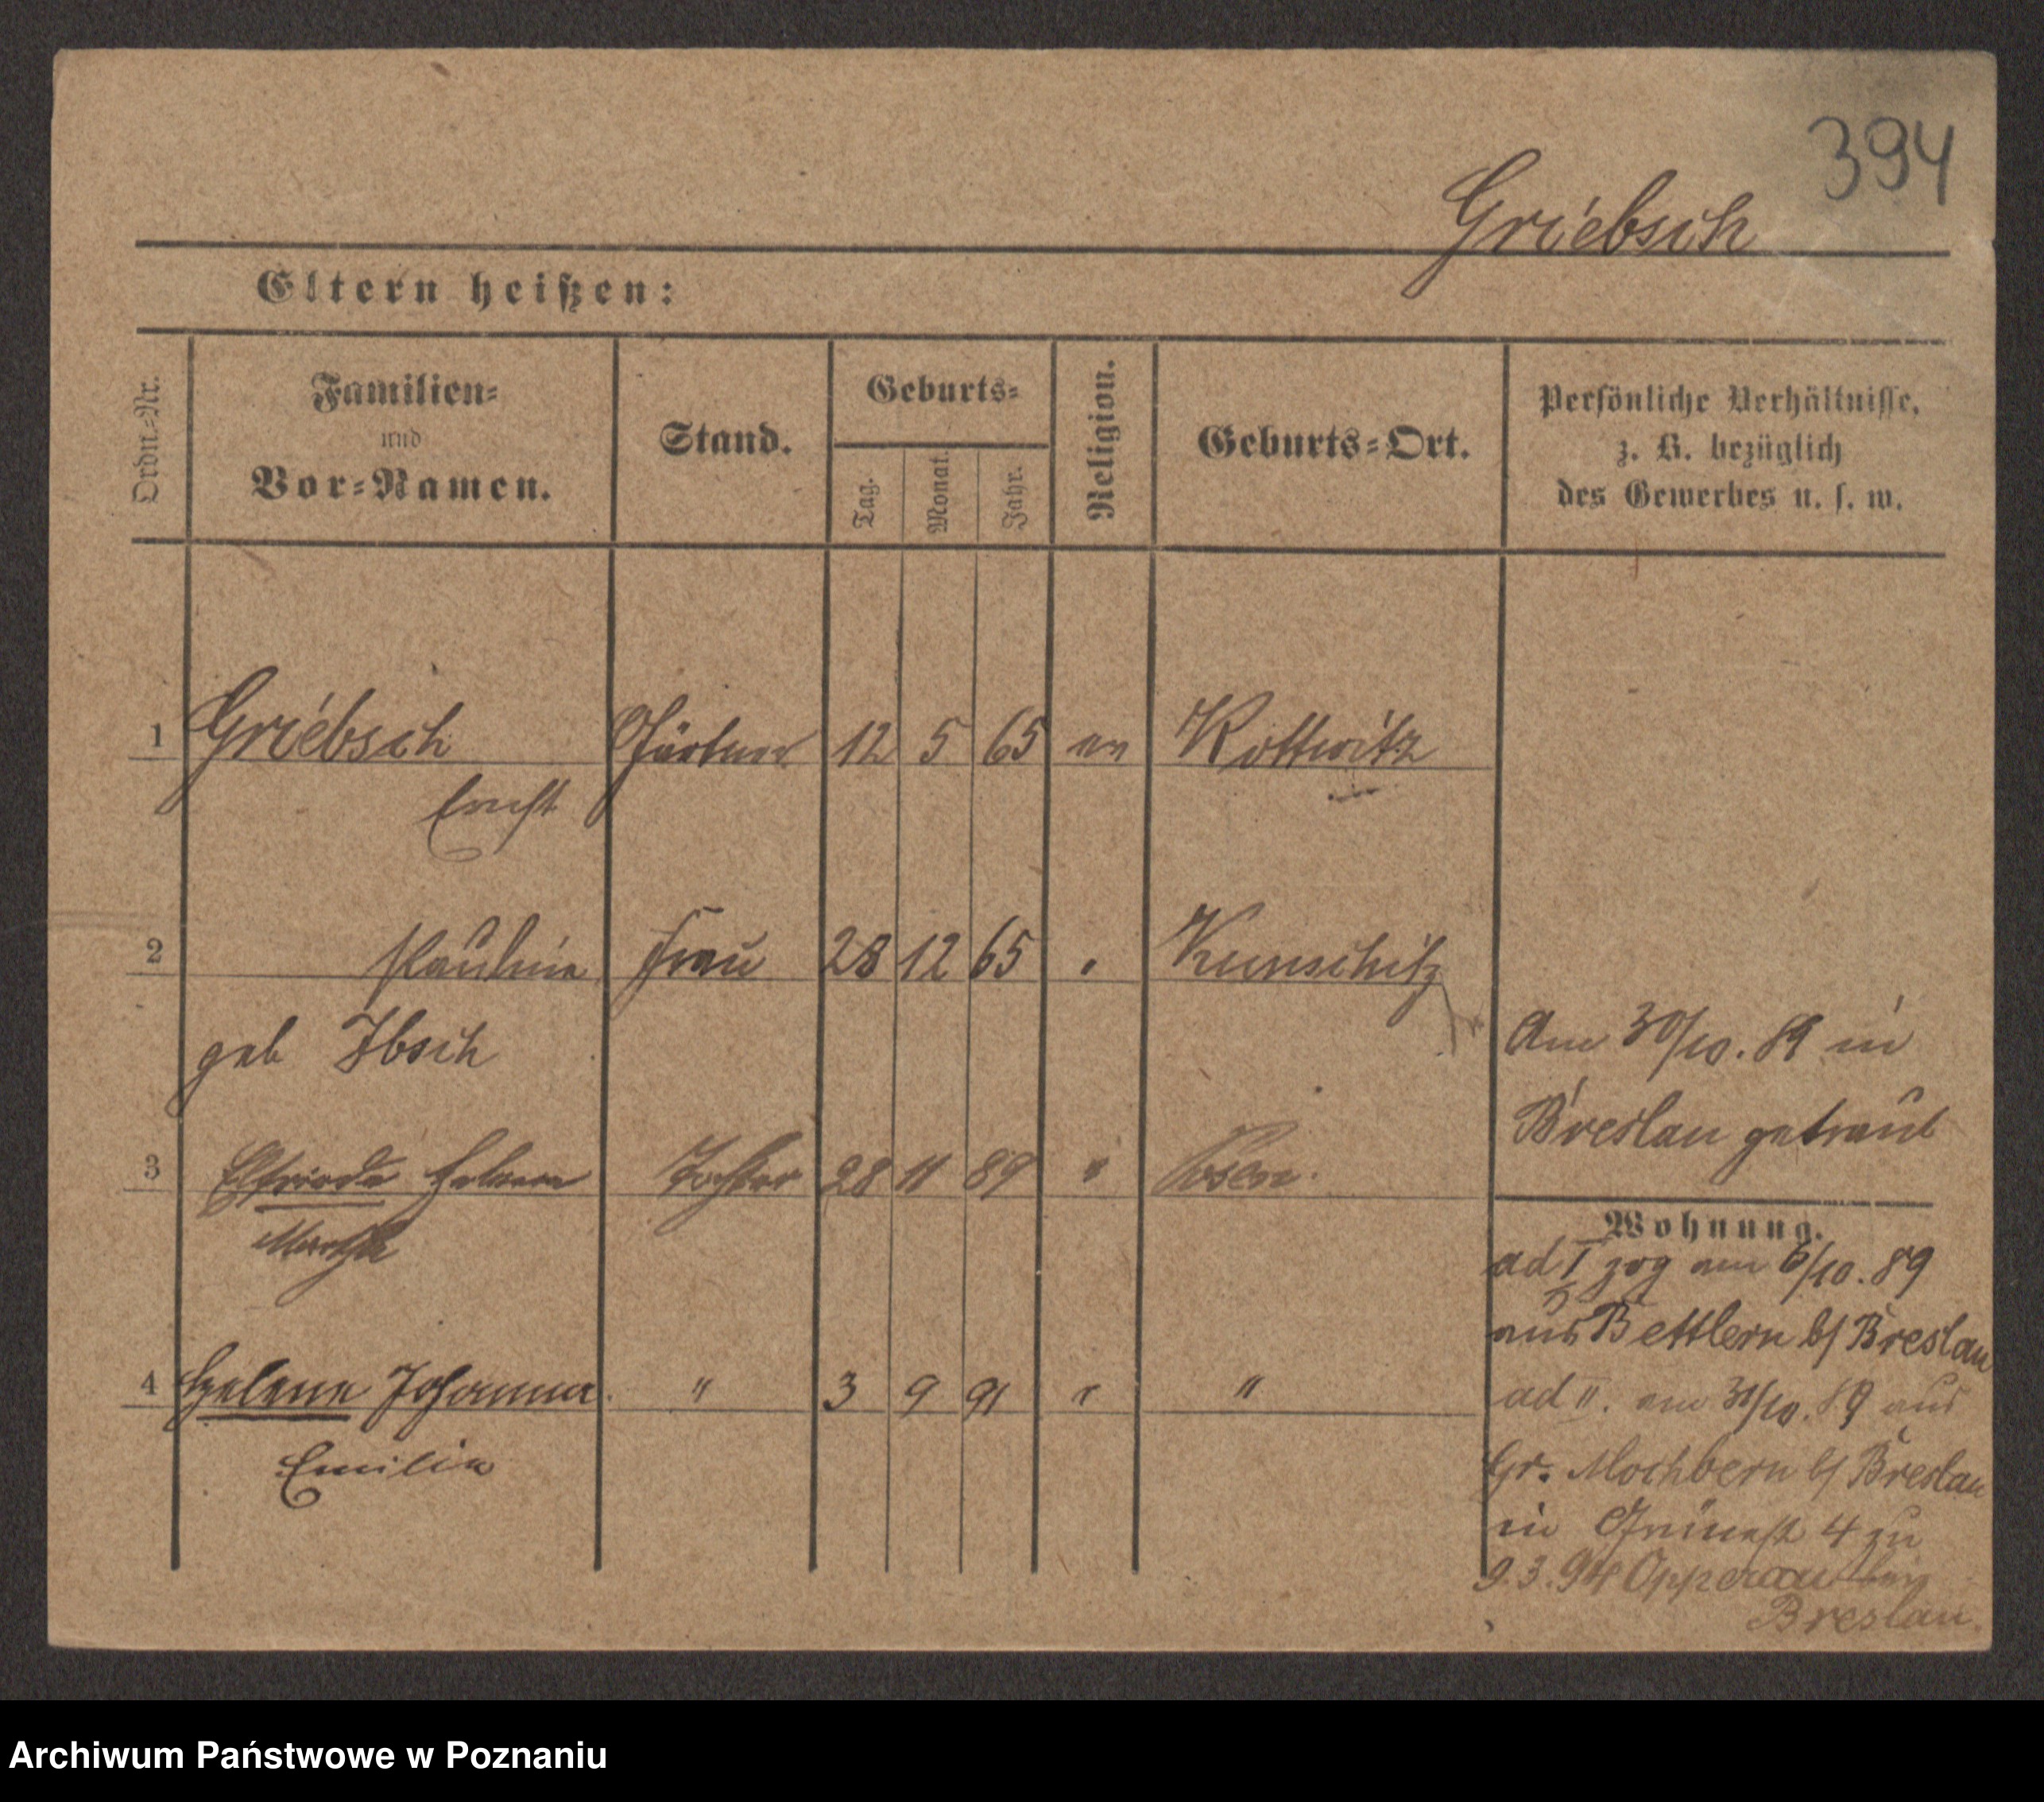 394
Griebsch
Eltern heißen:
Ordn.-Nr.
Familien-
und
Vor-Namen.
Stand.
Geburts-
Tag.
Monat.
Jahr.
Religion.
Geburts-Ort.
Persönliche Verhältnisse,
z. B. bezüglich
des Gewerbes u. s. w.
1 Griebsch Gärtner 12 5 65 ev Kottwitz
Ernst
2 Pauline Frau 28 12 65 " Kunschitz
geb Ibsch
Am 30/10. 89 in
Breslau getraut
3 Elfriede Helene Tochter 28 11 89 " Posen.
Martha
Wohnung.
ad I zog am 6/10. 89
aus Bettlern b/ Breslau
4 Helene Johanna " 3 9 91 " "
Emilie
ad II. am 31/10. 89 aus
Gr. Mochbern b/ Breslau
in Grünest 4 zu
9.3.94 Opperau
Breslau.
Archiwum Państwowe w Poznaniu